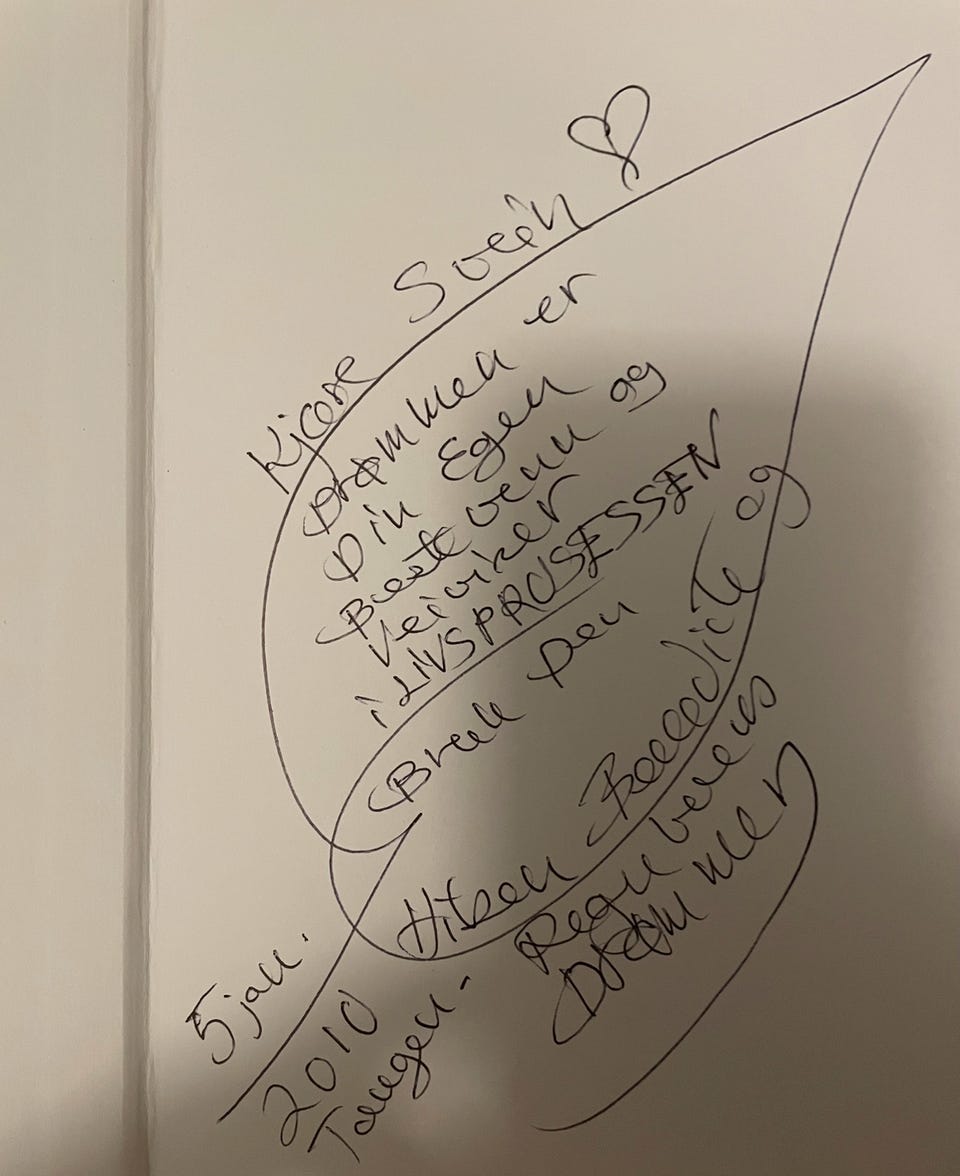 Kjære Svein
Drømmen er
Din Egen
Beste venn og
veiviser
i LIVSPROSESSEN
Bruk Den
Hilsen Benedicte og
Regnbuens
Drømmer
5 jan.
2010
Tangen -